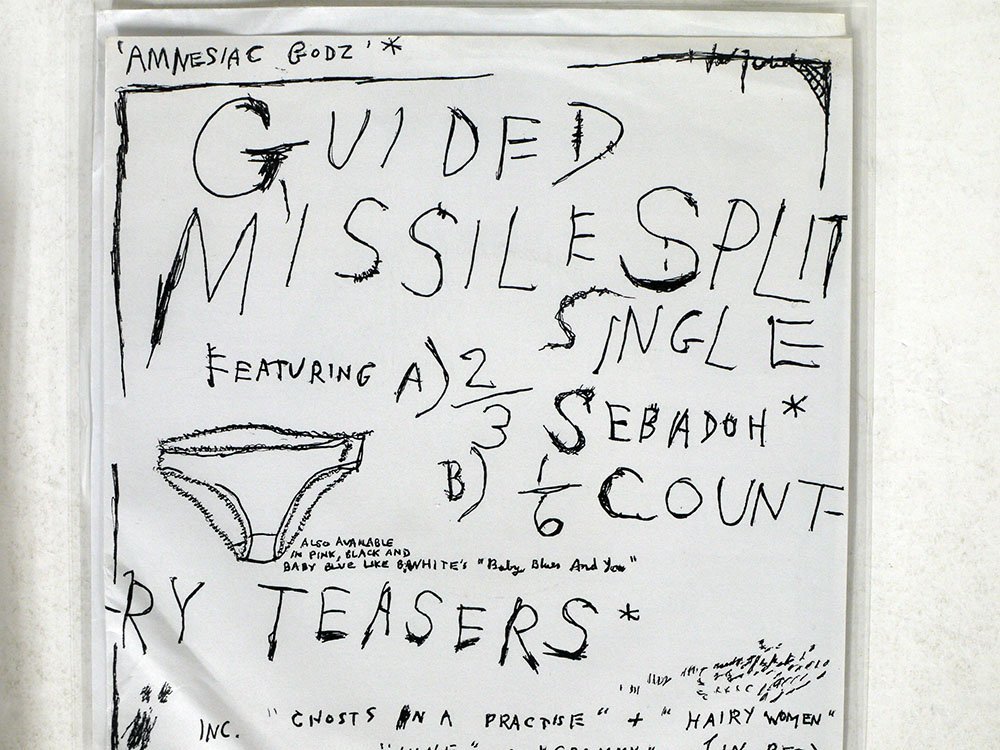 'AMNESIAC GODZ' *
GUIDED
MISSILE SPLIT
SINGLE
FEATURING A) 2/3
SEBADOH *
B) 1/6 COUNT-
ALSO AVAILABLE
IN PINK, BLACK AND
BABY BLUE LIKE B.WHITE'S "Baby Blues And You"
RY TEASERS *
INC. "GHOSTS IN A PRACTISE" + "HAIRY WOMEN"